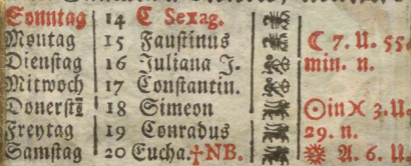 Sonntag 14 C Sexag.
Montag 15 Faustinus ☾ 7. U. 55
Dienstag 16 Juliana J. min. n.
Mitwoch 17 Constantin.
Donerstag 18 Simeon ☉in♓ 3.U.
Freytag 19 Conradus 29. n.
Samstag 20 Eucha.†NB. A. 6. U.